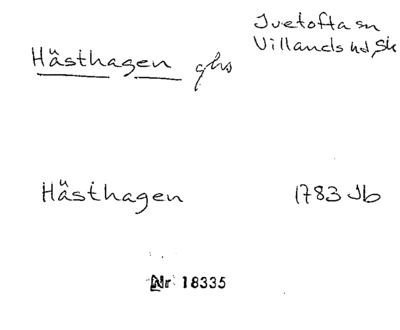 Ivetofta sn
Villands hd, Sk
Hästhagen ghs
Hästhagen 1783 Jb
Nr 18335